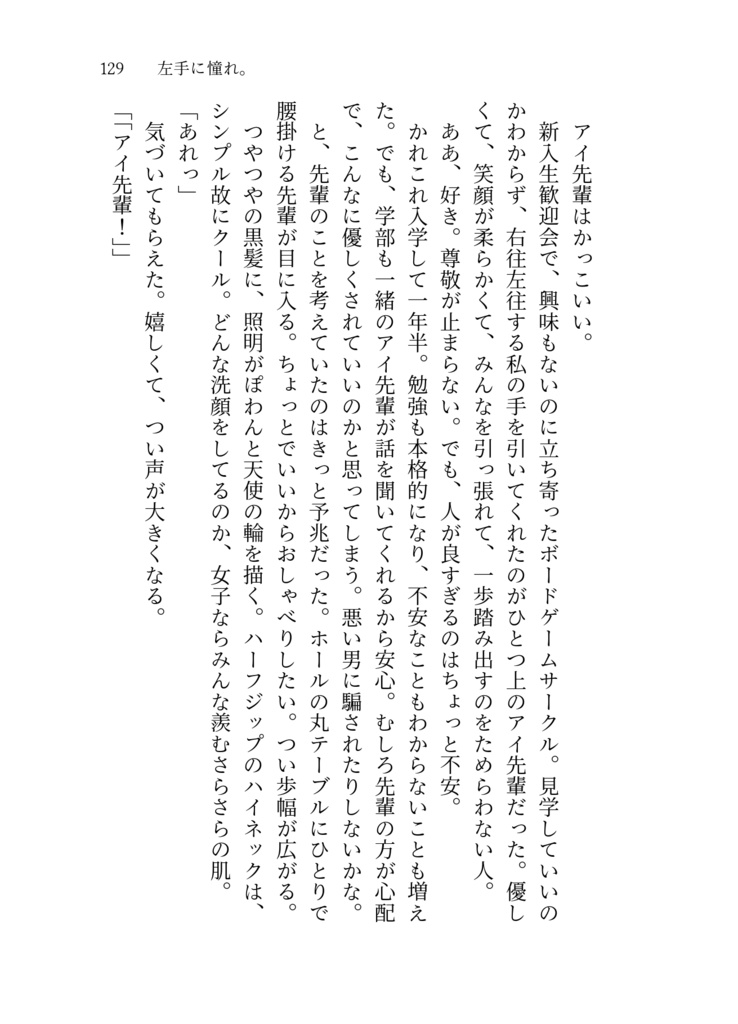 129　左手に憧れ。
アイ先輩はかっこいい。
新入生歓迎会で、興味もないのに立ち寄ったボードゲームサークル。見学していいの
かわからず、右往左往する私の手を引いてくれたのがひとつ上のアイ先輩だった。優し
くて、笑顔が柔らかくて、みんなを引っ張れて、一歩踏み出すのをためらわない人。
ああ、好き。尊敬が止まらない。でも、人が良すぎるのはちょっと不安。
かれこれ入学して一年半。勉強も本格的になり、不安なこともわからないことも増え
た。でも、学部も一緒のアイ先輩が話を聞いてくれるから安心。むしろ先輩の方が心配
で、こんなに優しくされていいのかと思ってしまう。悪い男に騙されたりしないかな。
と、先輩のことを考えていたのはきっと予兆だった。ホールの丸テーブルにひとりで
腰掛ける先輩が目に入る。ちょっとでいいからおしゃべりしたい。つい歩幅が広がる。
つやつやの黒髪に、照明がぽわんと天使の輪を描く。ハーフジップのハイネックは、
シンプル故にクール。どんな洗顔をしてるのか、女子ならみんな羨むさらさらの肌。
「あれっ」
気づいてもらえた。嬉しくて、つい声が大きくなる。
「「アイ先輩！」」